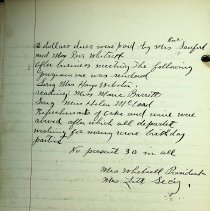 2 dollars dues were paid by Mrs.
and Mrs Roy Whitsett
after business meeting the following
program was rendered
Song Mrs Hays Webster
reading Miss Marie Barrett
Song Miss Helen McCloud
Refreshments of cake and were
served after which all departed
wishing for many more birthday
parties
No present 30 in all
Mrs Whitsett President
Mrs Secy